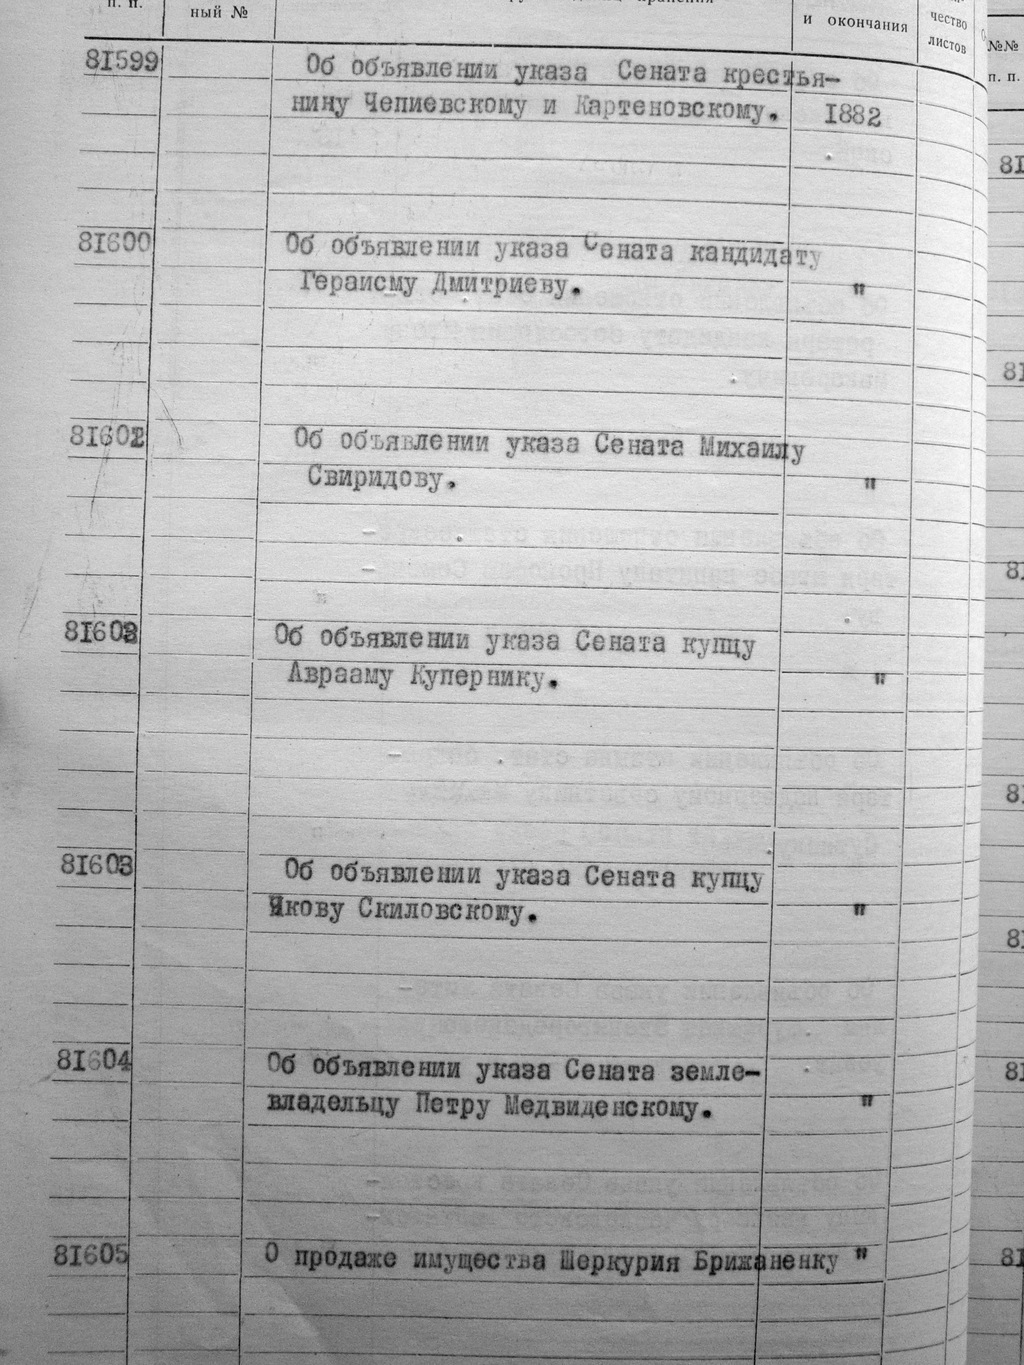 п. п.
ный №
и окончания
чество
листов
№№
п. п.
81599
Об объявлении указа Сената крестья-
нину Чепиевскому и Картеновскому.
1882
81600
Об объявлении указа Сената кандидату
Гераисму Дмитриеву. "
81601
Об объявлении указа Сената Михаилу
Свиридову. "
81602
Об объявлении указа Сената купцу
Аврааму Купернику. "
81603
Об объявлении указа Сената купцу
Якову Скиловскому. "
81604
Об объявлении указа Сената земле-
владельцу Петру Медвиденскому. "
81605
О продаже имущества Меркурия Брижаненку "